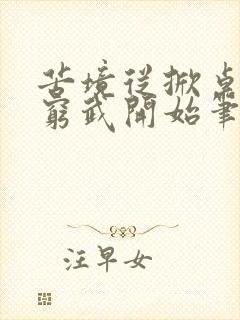 苦境從掀桌
窮武開始筆
汪早女